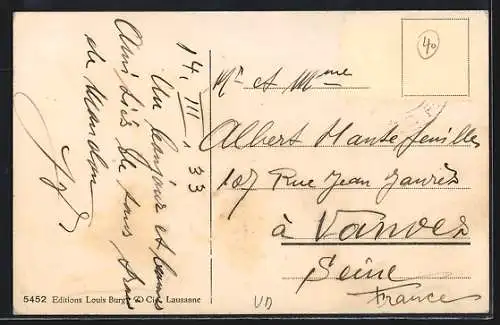 14. III. 33
Un bonjour et bonnes
Amitiés de tous deux
de Meudon
Mr et Mme
Albert Hautefeuille
107 Rue Jean Jaurès
à Vanves
Seine
France
40
VD
5452 Editions Louis Burgy & Cie, Lausanne